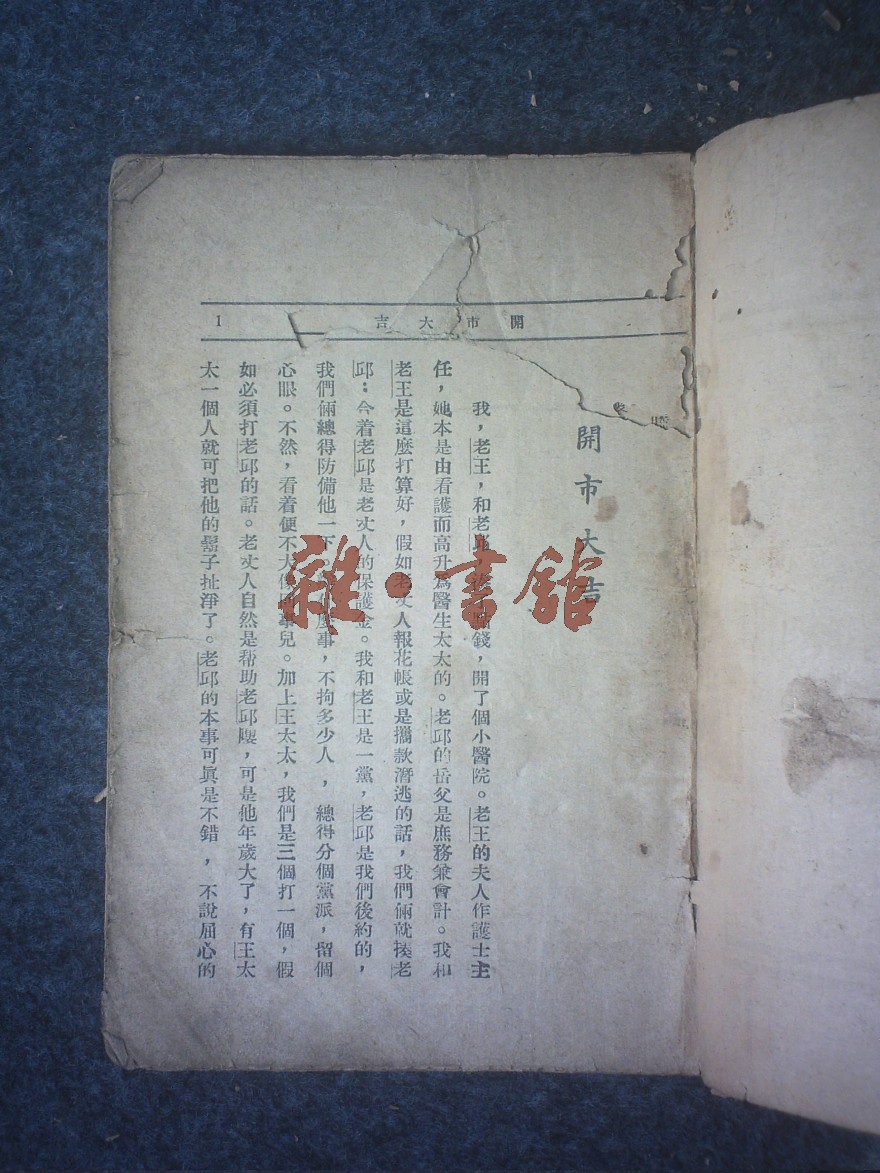 開市大吉
1
開市大吉
我，老王，和老邱，湊了點錢，開了個小醫院。老王的夫人作護士主
任，她本是由看護而高升爲醫生太太的。老邱的岳父是庶務兼會計。我和
老王是這麼打算好，假如老丈人報花帳或是攜款潛逃的話，我們倆就揍老
邱；合着老邱是老丈人的保護金。我和老王是一黨，老邱是我們後約的，
我們倆總得防備他一下。 事，不拘多少人，總得分個黨派，留個
心眼。不然，看着便不大像回事兒。加上王太太，我們是三個打一個，假
如必須打老邱的話。老丈人自然是帮助老邱嘍，可是他年歲大了，有王太
太一個人就可把他的鬍子扯淨了。老邱的本事可眞是不錯，不說屈心的
雜·書館